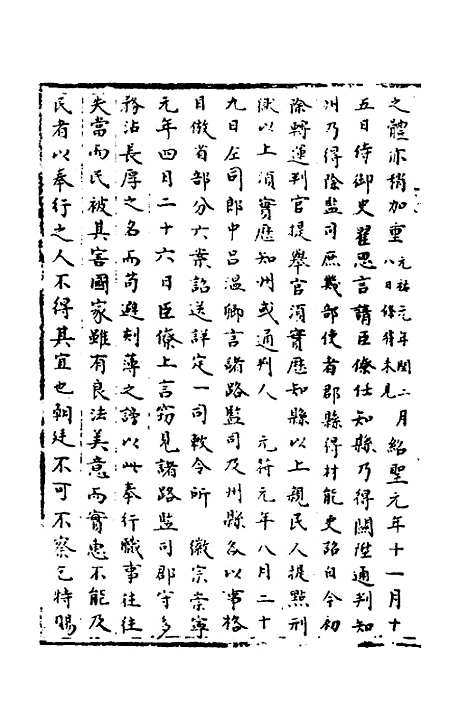 之體亦稍加重元祐元年閏二月八日條得未見紹聖元年十一月十
五日侍御史翟思言請臣僚任知縣乃得關陞通判知
州乃得除監司庶幾部使者郡縣得材能吏詔自今初
除轉運判官提舉官須實歷知縣以上親民人提點刑
獄以上須實歷知州或通判人　元符元年八月二十
九日左司郎中呂溫卿言諸路監司及州縣各以事格
目倣省部分六案詔送詳定一司敕令所　徽宗崇寧
元年四月二十六日臣僚上言竊見諸路監司郡守多
務沽長厚之名而苟避刻薄之謗以此奉行職事往往
失當而民被其害國家雖有良法美意而實惠不能及
民者以奉行之人不得其宜也朝廷不可不察乞特賜